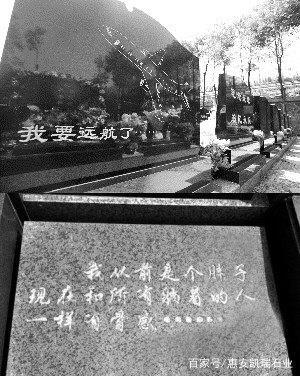 我要远航了
我从前是个胖子
现在和所有躺着的人
一样有骨感......
百家号/惠安凯瑞石业